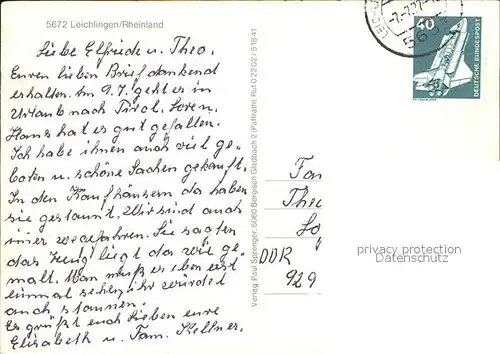 5672 Leichlingen/Rheinland
Liebe Elfriede u. Theo.
Euren lieben Brief dankend
erhalten. Im 9.7. geht es in
Urlaub nach Tirol.
Hans hat es gut gefallen.
Ich habe ihnen auch viel ge-
boten u. schöne Sachen gekauft.
In den Kaufhäusern da haben
sie gestaunt. Wir sind auch
immer weggefahren. Sie sagten
das
malt. Man muß es eben erst
einmal sehen, ihr würdet
auch staunen.
Es grüßt euch Lieben eure
Elisabeth u. Fam. Kellner.
Verlag Paul Sprenger, 5060 Bergisch Gladbach 2 (Paffrath) Ruf 0 22 02 / 5 18 41
40
DEUTSCHE BUNDESPOST
565
Fam
Theo
DDR
929
privacy protection
Datenschutz